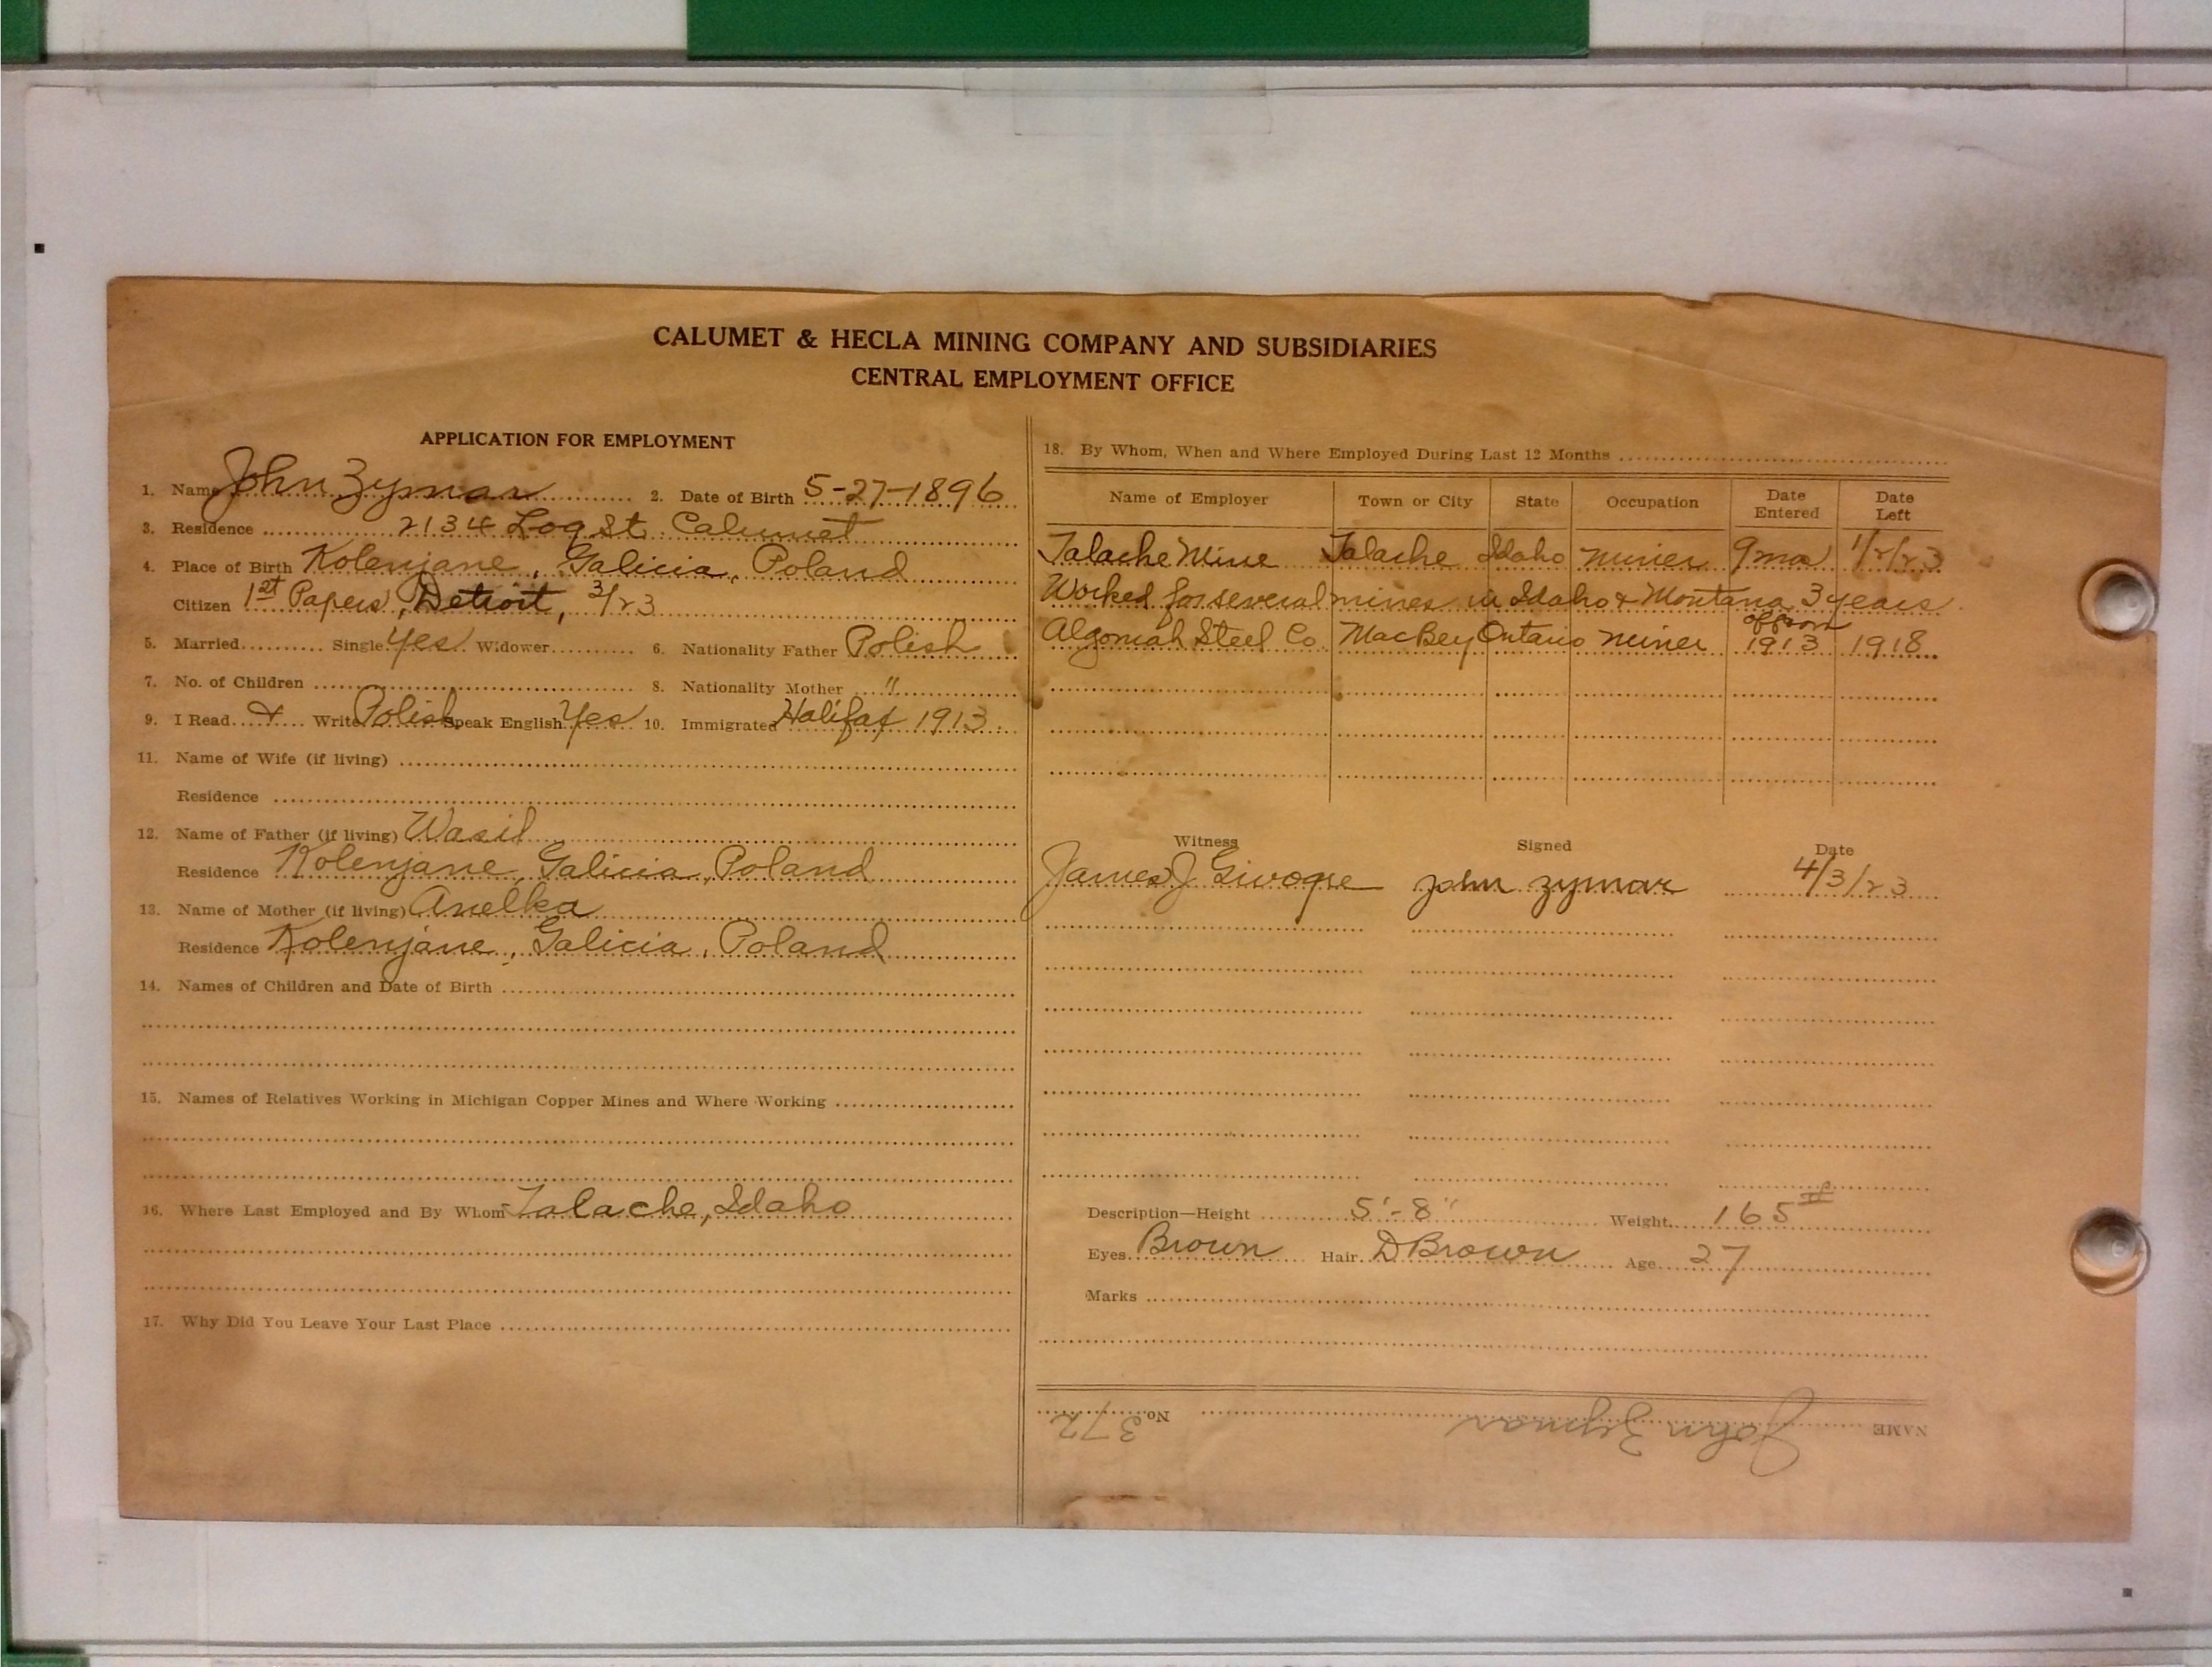 CALUMET & HECLA MINING COMPANY AND SUBSIDIARIES
CENTRAL EMPLOYMENT OFFICE
APPLICATION FOR EMPLOYMENT
1. Name John Zymar 2. Date of Birth 5-27-1896
3. Residence 2134 Log St. Calumet
4. Place of Birth Kolenjane, Galicia, Poland
Citizen 1st Papers, Detroit, 3/23
5. Married Single Yes Widower 6. Nationality Father Polish
7. No. of Children 8. Nationality Mother "
9. I Read & Write Polish Speak English Yes 10. Immigrated Halifax 1913
11. Name of Wife (if living)
Residence
12. Name of Father (if living) Wasil
Residence Kolenjane, Galicia, Poland
13. Name of Mother (if living) Anelka
Residence Kolenjane, Galicia, Poland
14. Names of Children and Date of Birth
15. Names of Relatives Working in Michigan Copper Mines and Where Working
16. Where Last Employed and By Whom Talache, Idaho
17. Why Did You Leave Your Last Place
18. By Whom, When and Where Employed During Last 12 Months
Name of Employer Town or City State Occupation Date Entered Date Left
Talache Mine Talache Idaho Miner 9 mo 1/2/23
Worked for several mines in Idaho & Montana 3 years
Algomah Steel Co MacBey Ontario Miner off & on 1913 1918
Witness Signed Date
James J john zymar 4/3/23
Description—Height 5'-8" Weight 165 #
Eyes Brown Hair D Brown Age 27
Marks
NAME John Zymar No. 372